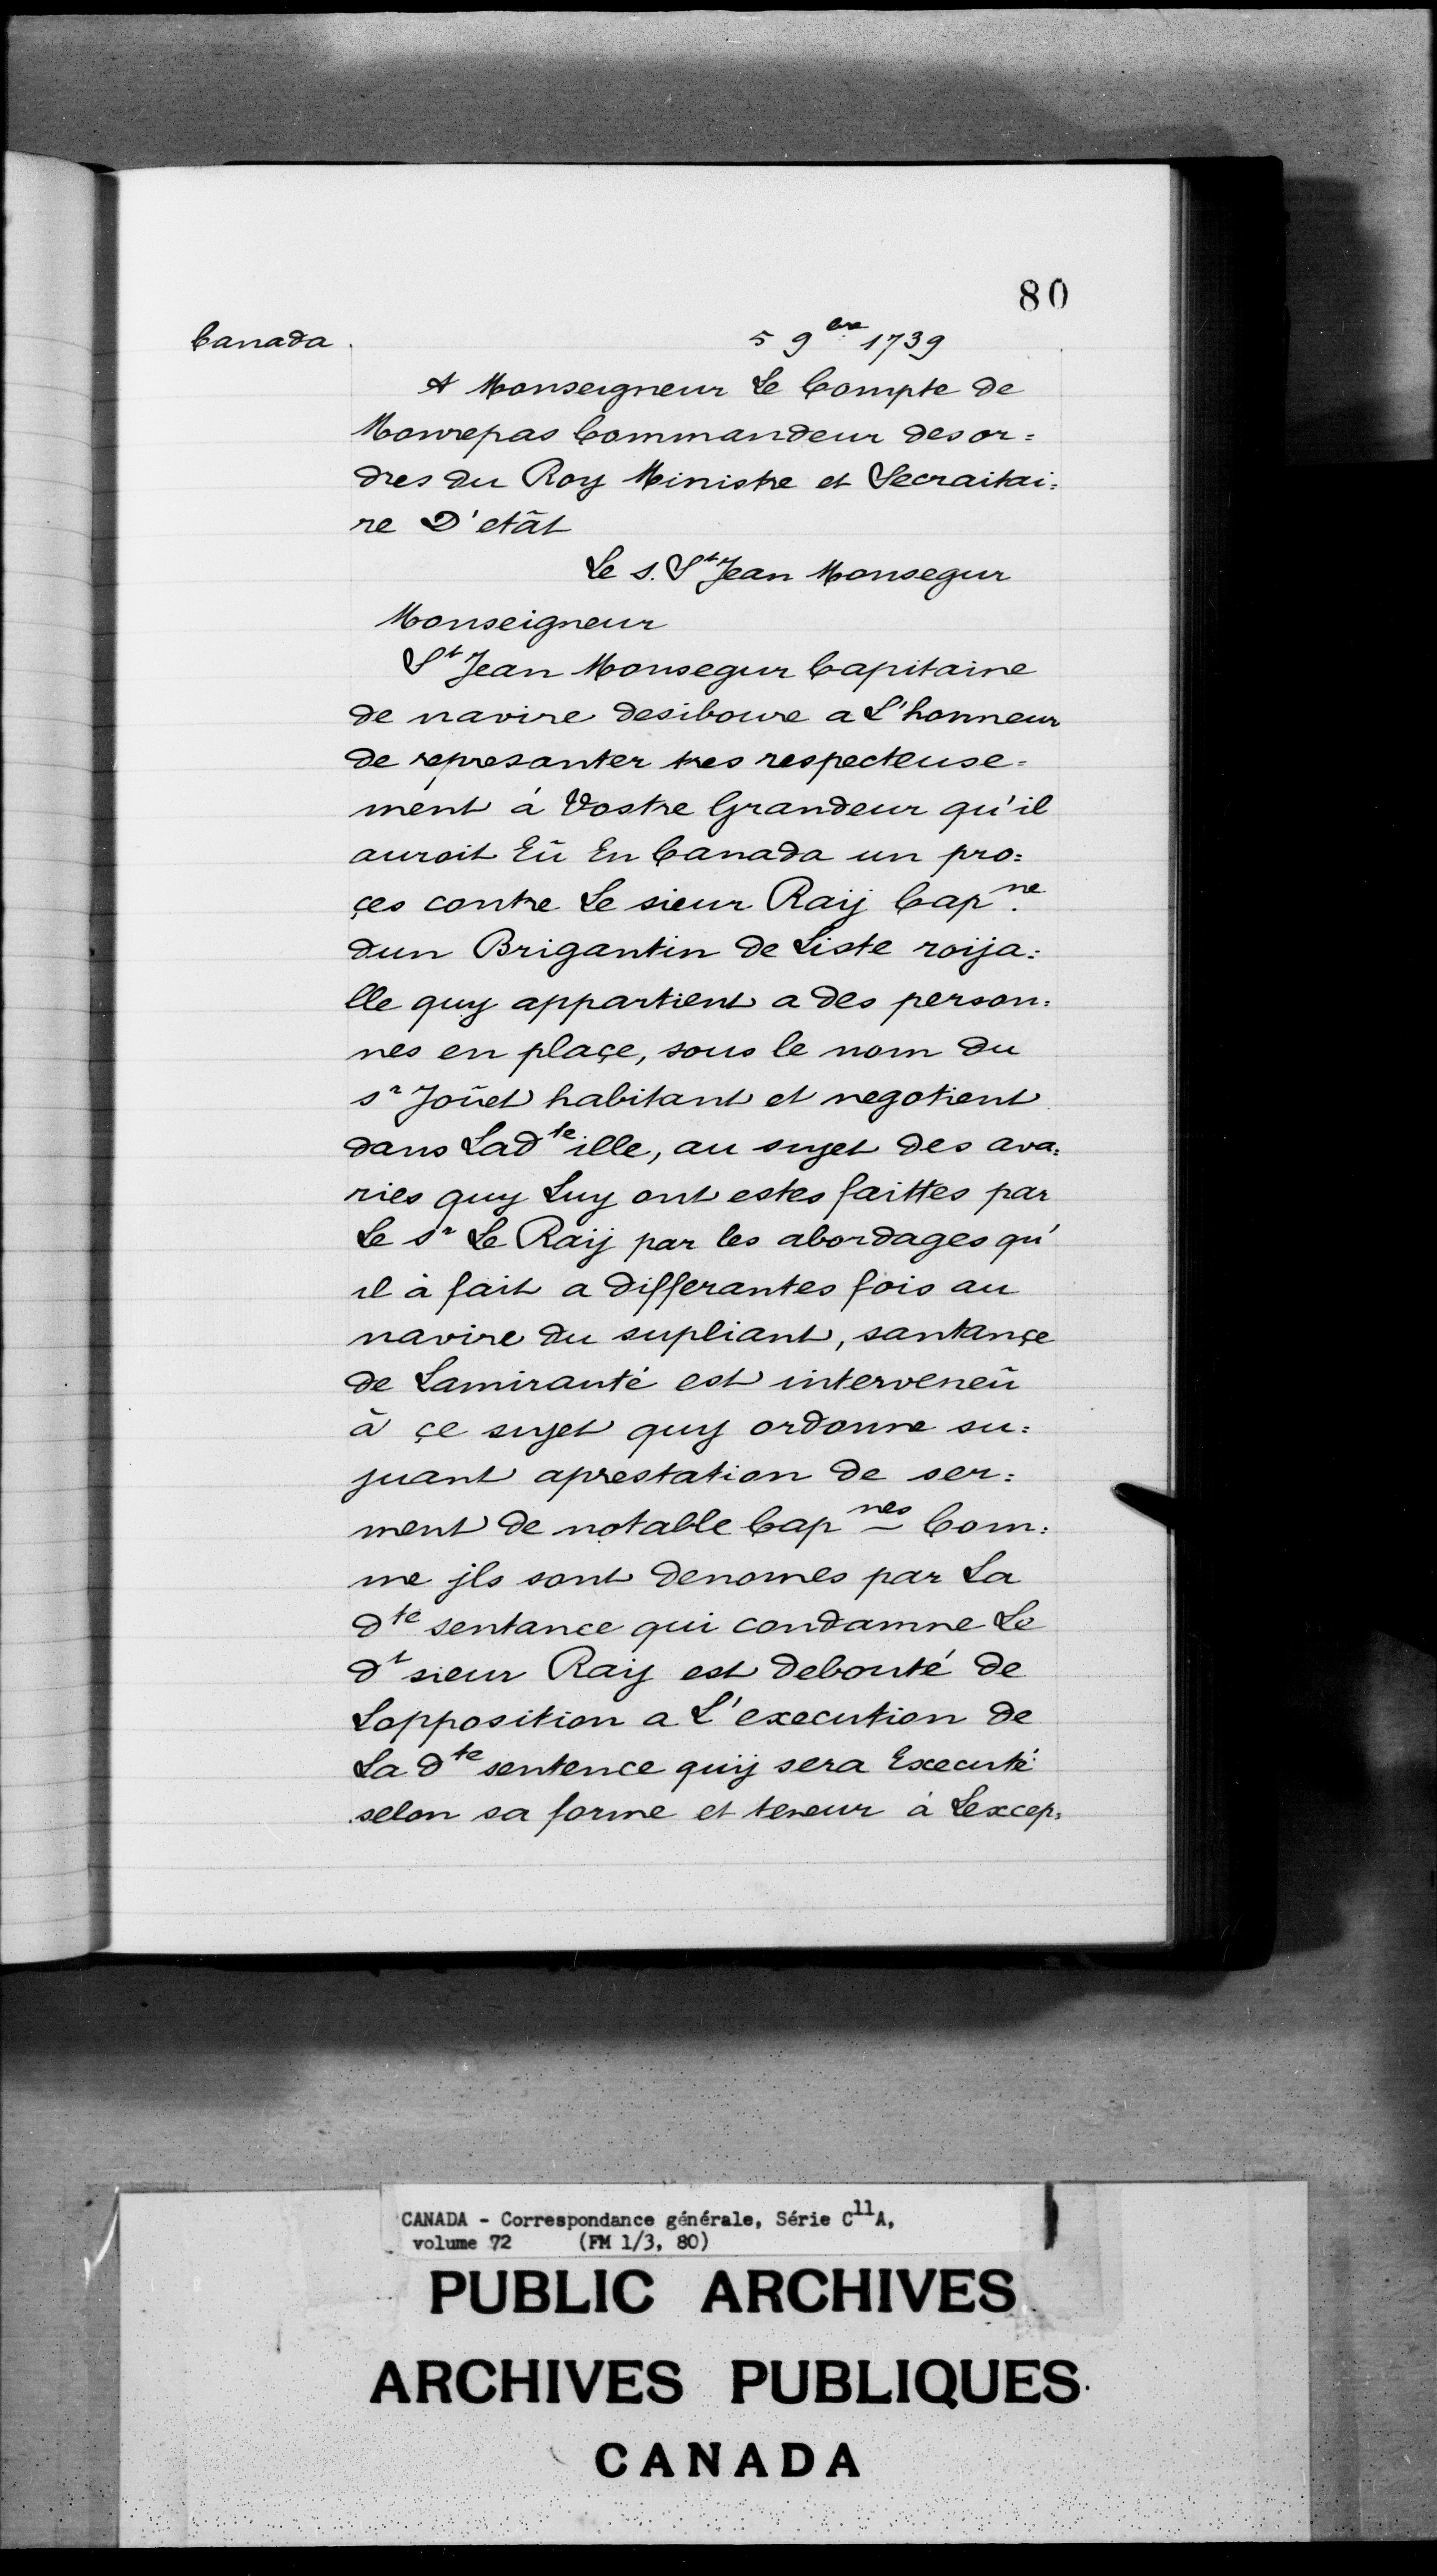 80
Canada.
5 9bre 1739
A Monseigneur Le Compte de
Monrepas Commandeur des or=
dres du Roy Ministre et Secraitai=
re D'etât
Le s. St Jean Monsegur
Monseigneur
St Jean Monsegur Capitaine
de navire desiboure a L'honneur
de represanter tres respecteuse=
ment à Vostre Grandeur qu'il
auroit Eû En Canada un pro=
çes contre Le sieur Raij Capne
dun Brigantin de Liste roija=
lle quy appartient a des person=
nes en plaçe, sous le nom du
sr Joüet habitant et negotient
dans Ladte ille, au sujet des ava=
ries quy Luy ont estes faittes par
Le sr Le Raij par les abordages qu'
il à fait a differantes fois au
navire du supliant, santançe
de Lamirauté est interveneü
à çe sujet quy ordonne su=
juant aprestation de ser=
ment de notable Capnes Com=
me jls sont denomes par La
dte sentance qui condamne Le
dt sieur Raij est debouté de
Lopposition a L'execution de
La dte sentence quij sera Executé
selon sa forme et teneur à Lexcep=
CANADA - Correspondance générale, Série C11A,
volume 72 (FM 1/3, 80)
PUBLIC ARCHIVES
ARCHIVES PUBLIQUES
CANADA